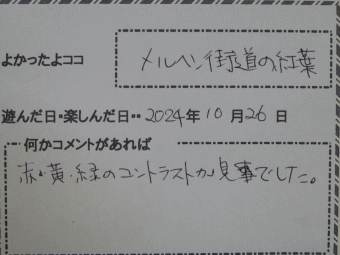 よかったよココ メルヘン街道の紅葉
遊んだ日・楽しんだ日・・2024年10月26日
何かコメントがあれば
赤・黄・緑のコントラストが見事でした。